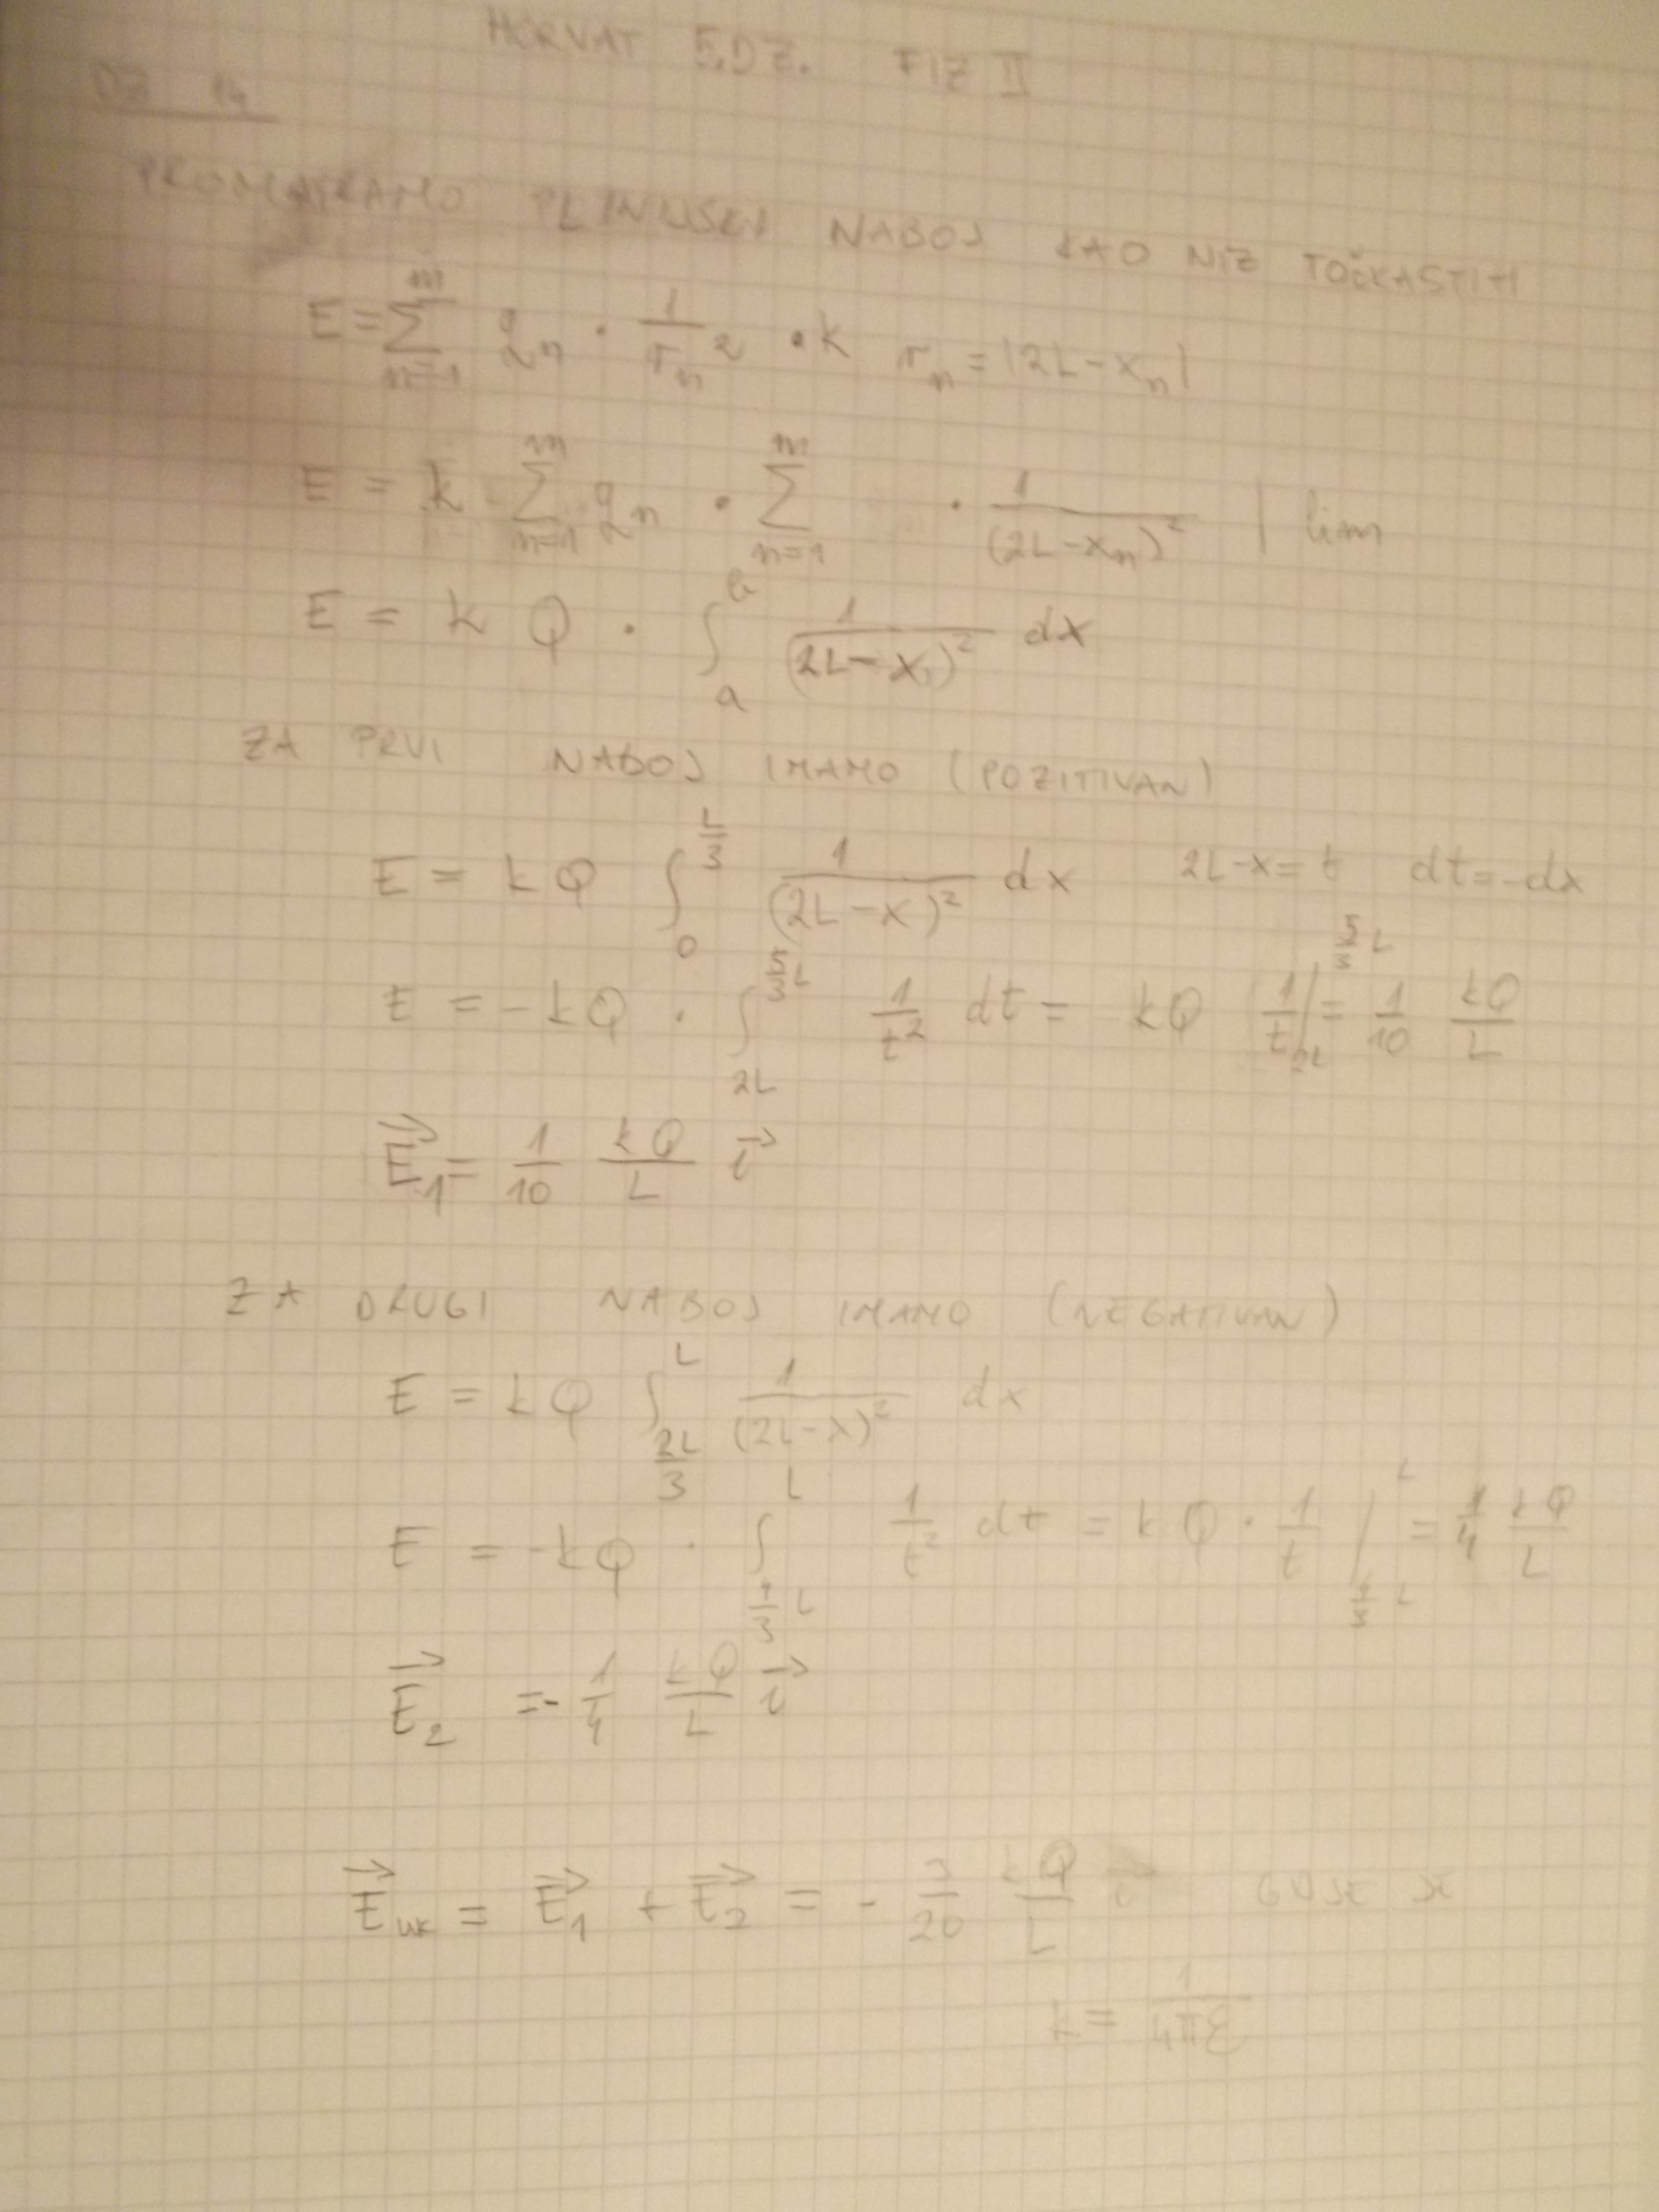 HORVAT 5.DZ. FIZ II
DZ 14
PROMATRAMO LINIJSKI NABOJ KAO NIZ TOČKASTIH
E = \sum_{n=1}^{m} q_n · \frac{1}{r_n^2} · k   r_n = |2L-x_n|
E = k \sum_{n=1}^{m} q_n · \sum_{n=1}^{m} · \frac{1}{(2L-x_n)^2} | lim
E = k Q · \int_a^b \frac{1}{(2L-x_1)^2} dx
ZA PRVI NABOJ IMAMO (POZITIVAN)
E = kQ \int_0^{\frac{L}{3}} \frac{1}{(2L-x)^2} dx   2L-x=t   dt=-dx
E = -kQ · \int_{2L}^{\frac{5}{3}L} \frac{1}{t^2} dt = kQ \frac{1}{t} |_{2L}^{\frac{5}{3}L} = \frac{1}{10} \frac{kQ}{L}
\vec{E}_1 = \frac{1}{10} \frac{kQ}{L} \vec{i}
ZA DRUGI NABOJ IMAMO (NEGATIVAN)
E = kQ \int_{\frac{2L}{3}}^{L} \frac{1}{(2L-x)^2} dx
E = -kQ · \int_{\frac{4}{3}L}^{L} \frac{1}{t^2} dt = kQ · \frac{1}{t} |_{\frac{4}{3}L}^{L} = \frac{1}{4} \frac{kQ}{L}
\vec{E}_2 = -\frac{1}{4} \frac{kQ}{L} \vec{i}
\vec{E}_{uk} = \vec{E}_1 + \vec{E}_2 = -\frac{3}{20} \frac{kQ}{L} \vec{i} GDJE JE
k = \frac{1}{4πε}